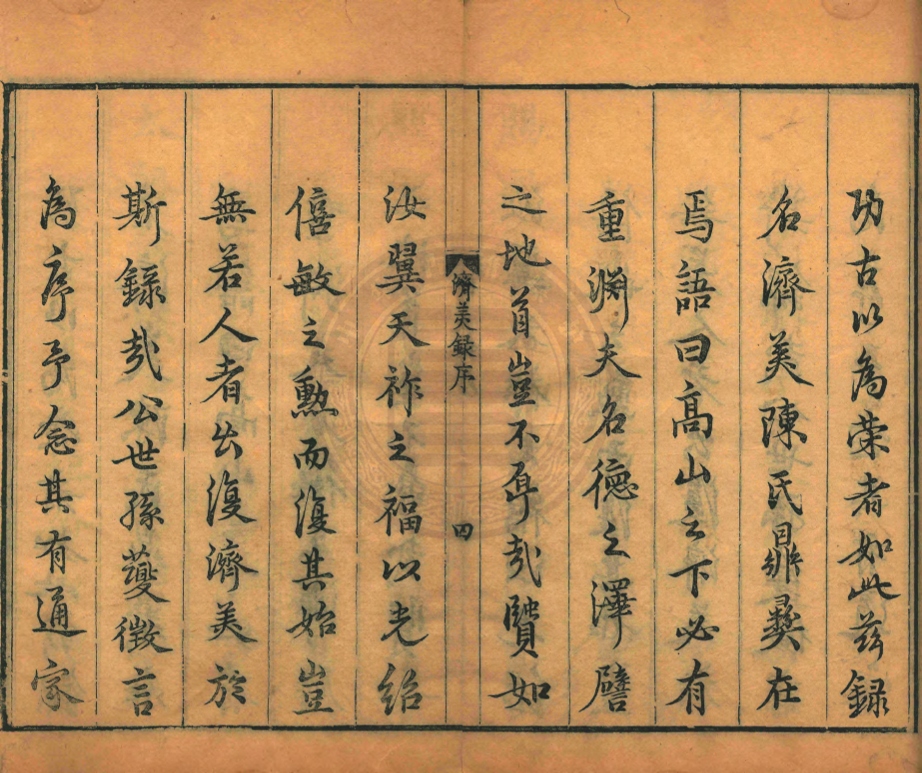 功古以為荣者如此茲録
名濟美陳氏鼎彝在
焉語曰高山之下必有
重渊夫名德之澤譬
之地首豈不厚哉如
濟美録序 四
汝翼天祚之福以光紹
僖敏之勲而復其始豈
無若人者出復濟美於
斯録哉公世孫夔徵言
為序予念其有通家